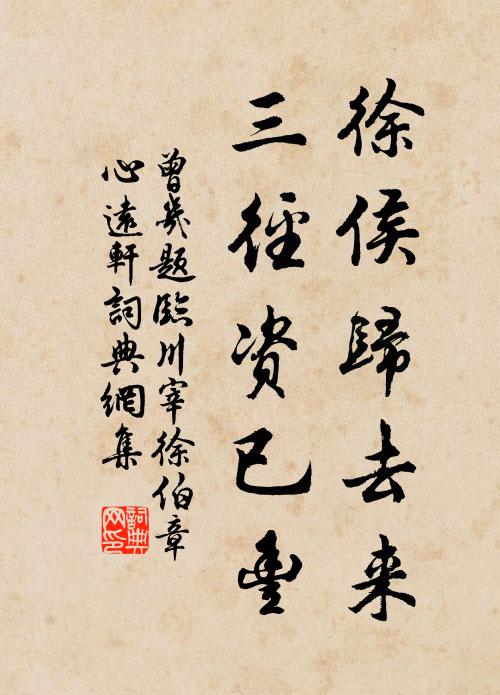 徐侯歸去来
三徑资已豊
曾幾題臨川宰徐伯章
心遠軒詞典網集
詞典网印